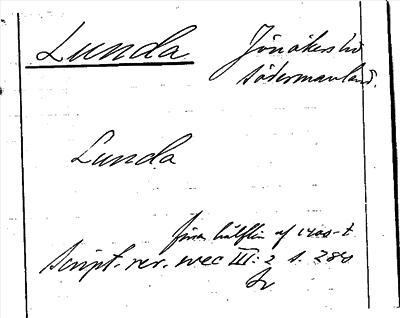 Lunda Jönåkers hd
Södermanland.
Lunda
förra hälften af 1400-t
Script. rer. svec III: 2 s. 284